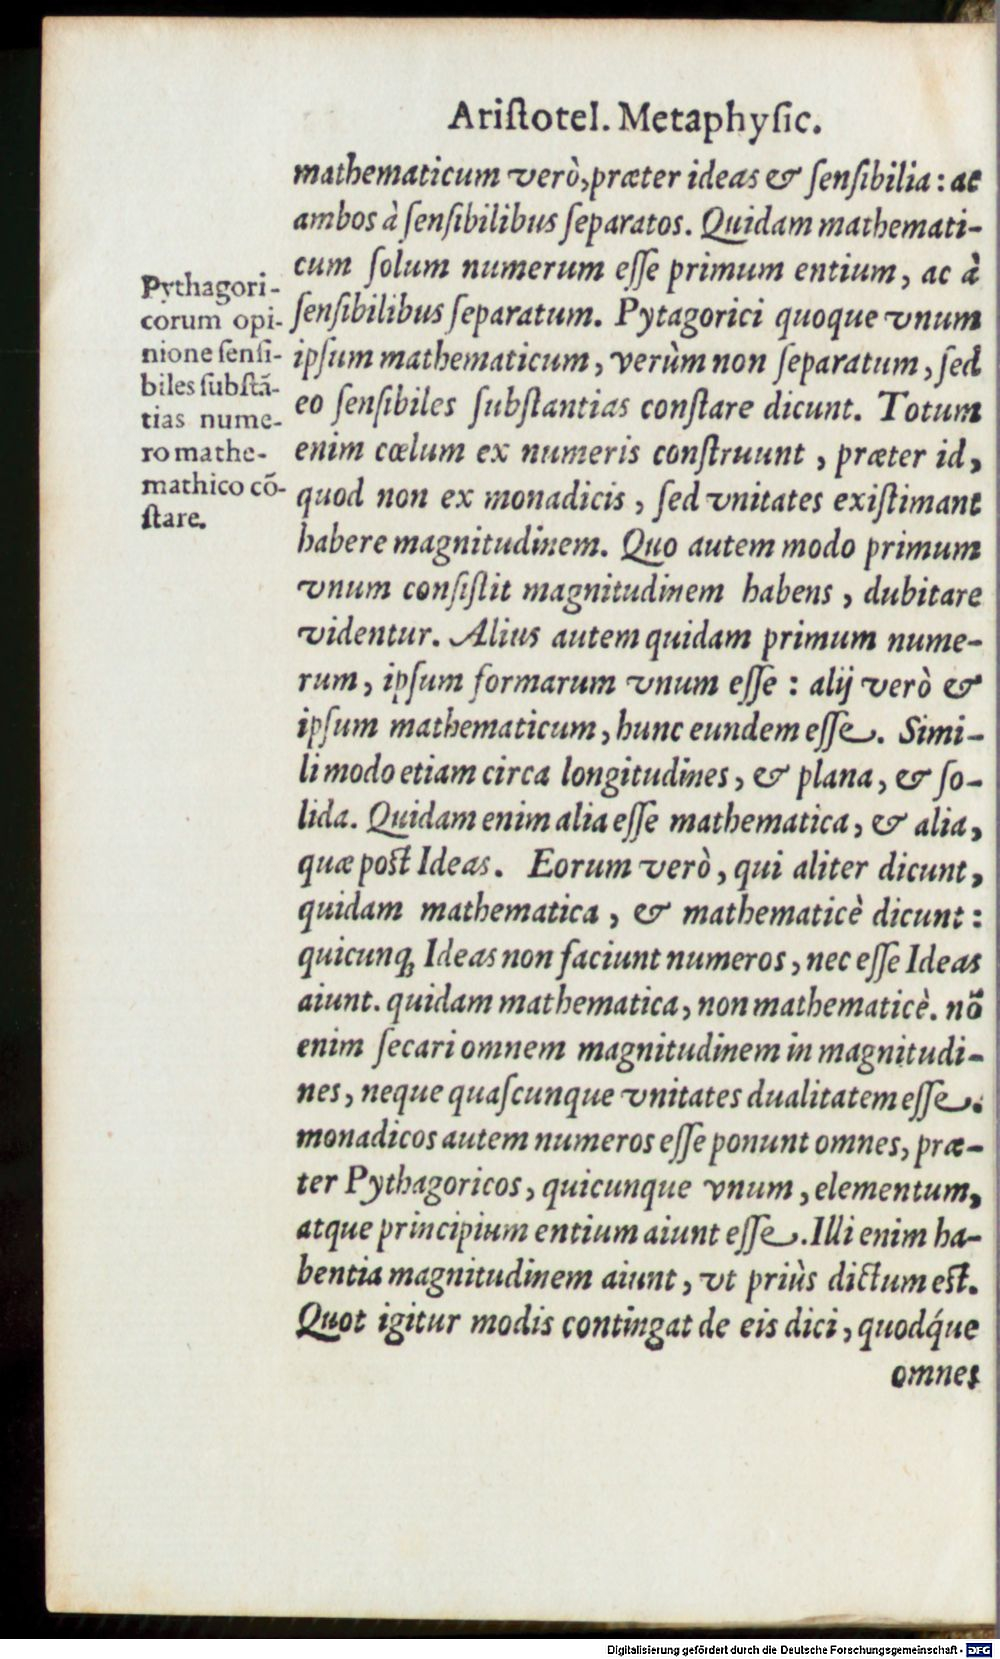 Ariſtotel. Metaphyſic.
mathematicum verò, præter ideas & ſenſibilia: ac
ambos à ſenſibilibus ſeparatos. Quidam mathemati-
cum ſolum numerum eſſe primum entium, ac à
ſenſibilibus ſeparatum. Pytagorici quoque vnum
ipſum mathematicum, verùm non ſeparatum, ſed
eo ſenſibiles ſubſtantias conſtare dicunt. Totum
enim cœlum ex numeris conſtruunt, præter id,
quod non ex monadicis, ſed vnitates exiſtimant
habere magnitudinem. Quo autem modo primum
vnum conſiſtit magnitudinem habens, dubitare
videntur. Alius autem quidam primum nume-
rum, ipſum formarum vnum eſſe: alij verò &
ipſum mathematicum, hunc eundem eſſe. Simi-
li modo etiam circa longitudines, & plana, & ſo-
lida. Quidam enim alia eſſe mathematica, & alia,
quæ poſt Ideas. Eorum verò, qui aliter dicunt,
quidam mathematica, & mathematicè dicunt:
quicunq; Ideas non faciunt numeros, nec eſſe Ideas
aiunt. quidam mathematica, non mathematicè. nō
enim ſecari omnem magnitudinem in magnitudi-
nes, neque quaſcunque vnitates dualitatem eſſe.
monadicos autem numeros eſſe ponunt omnes, præ-
ter Pythagoricos, quicunque vnum, elementum,
atque principium entium aiunt eſſe. Illi enim ha-
bentia magnitudinem aiunt, vt priùs dictum eſt.
Quot igitur modis contingat de eis dici, quodq́ue
omnes
Pythagori-
corum opi-
nione ſenſi-
biles ſubſtā-
tias nume-
ro mathe-
mathico cō-
ſtare.
Digitalisierung gefördert durch die Deutsche Forschungsgemeinschaft - DFG